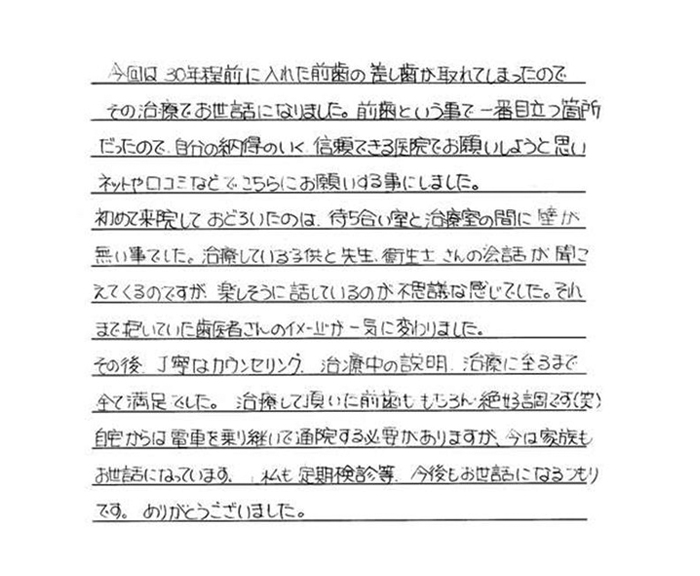 今回は30年程前に入れた前歯の差し歯が取れてしまったので
その治療でお世話になりました。前歯という事で一番目立つ箇所
だったので、自分の納得のいく、信頼できる医院でお願いしようと思い
ネットや口コミなどでこちらにお願いする事にしました。
初めて来院しておどろいたのは、待ち合い室と治療室の間に壁が
無い事でした。治療している子供と先生、衛生士さんの会話が聞こ
えてくるのですが、楽しそうに話しているのが不思議な感じでした。それ
まで抱いていた歯医者さんのイメージが一気に変わりました。
その後、丁寧なカウンセリング、治療中の説明、治療に至るまで
全て満足でした。治療して頂いた前歯ももちろん絶好調です(笑)
自宅からは電車を乗り継いで通院する必要がありますが、今は家族も
お世話になっています。私も定期検診等、今後もお世話になるつもり
です。ありがとうございました。